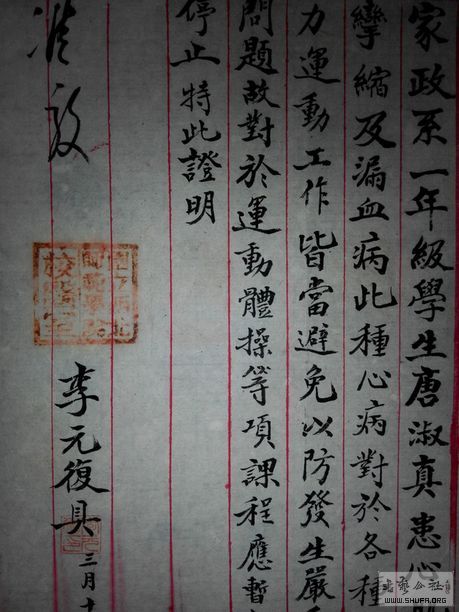 家政系一年級學生唐淑真患心
攣縮及漏血病此種心病對於各種
力運動工作皆當避免以防發生嚴
問題故對於運動體操等項課程應暫
停止特此證明
李元復具
三月十
准致
書藝公社
WWW.SHUFA.ORG